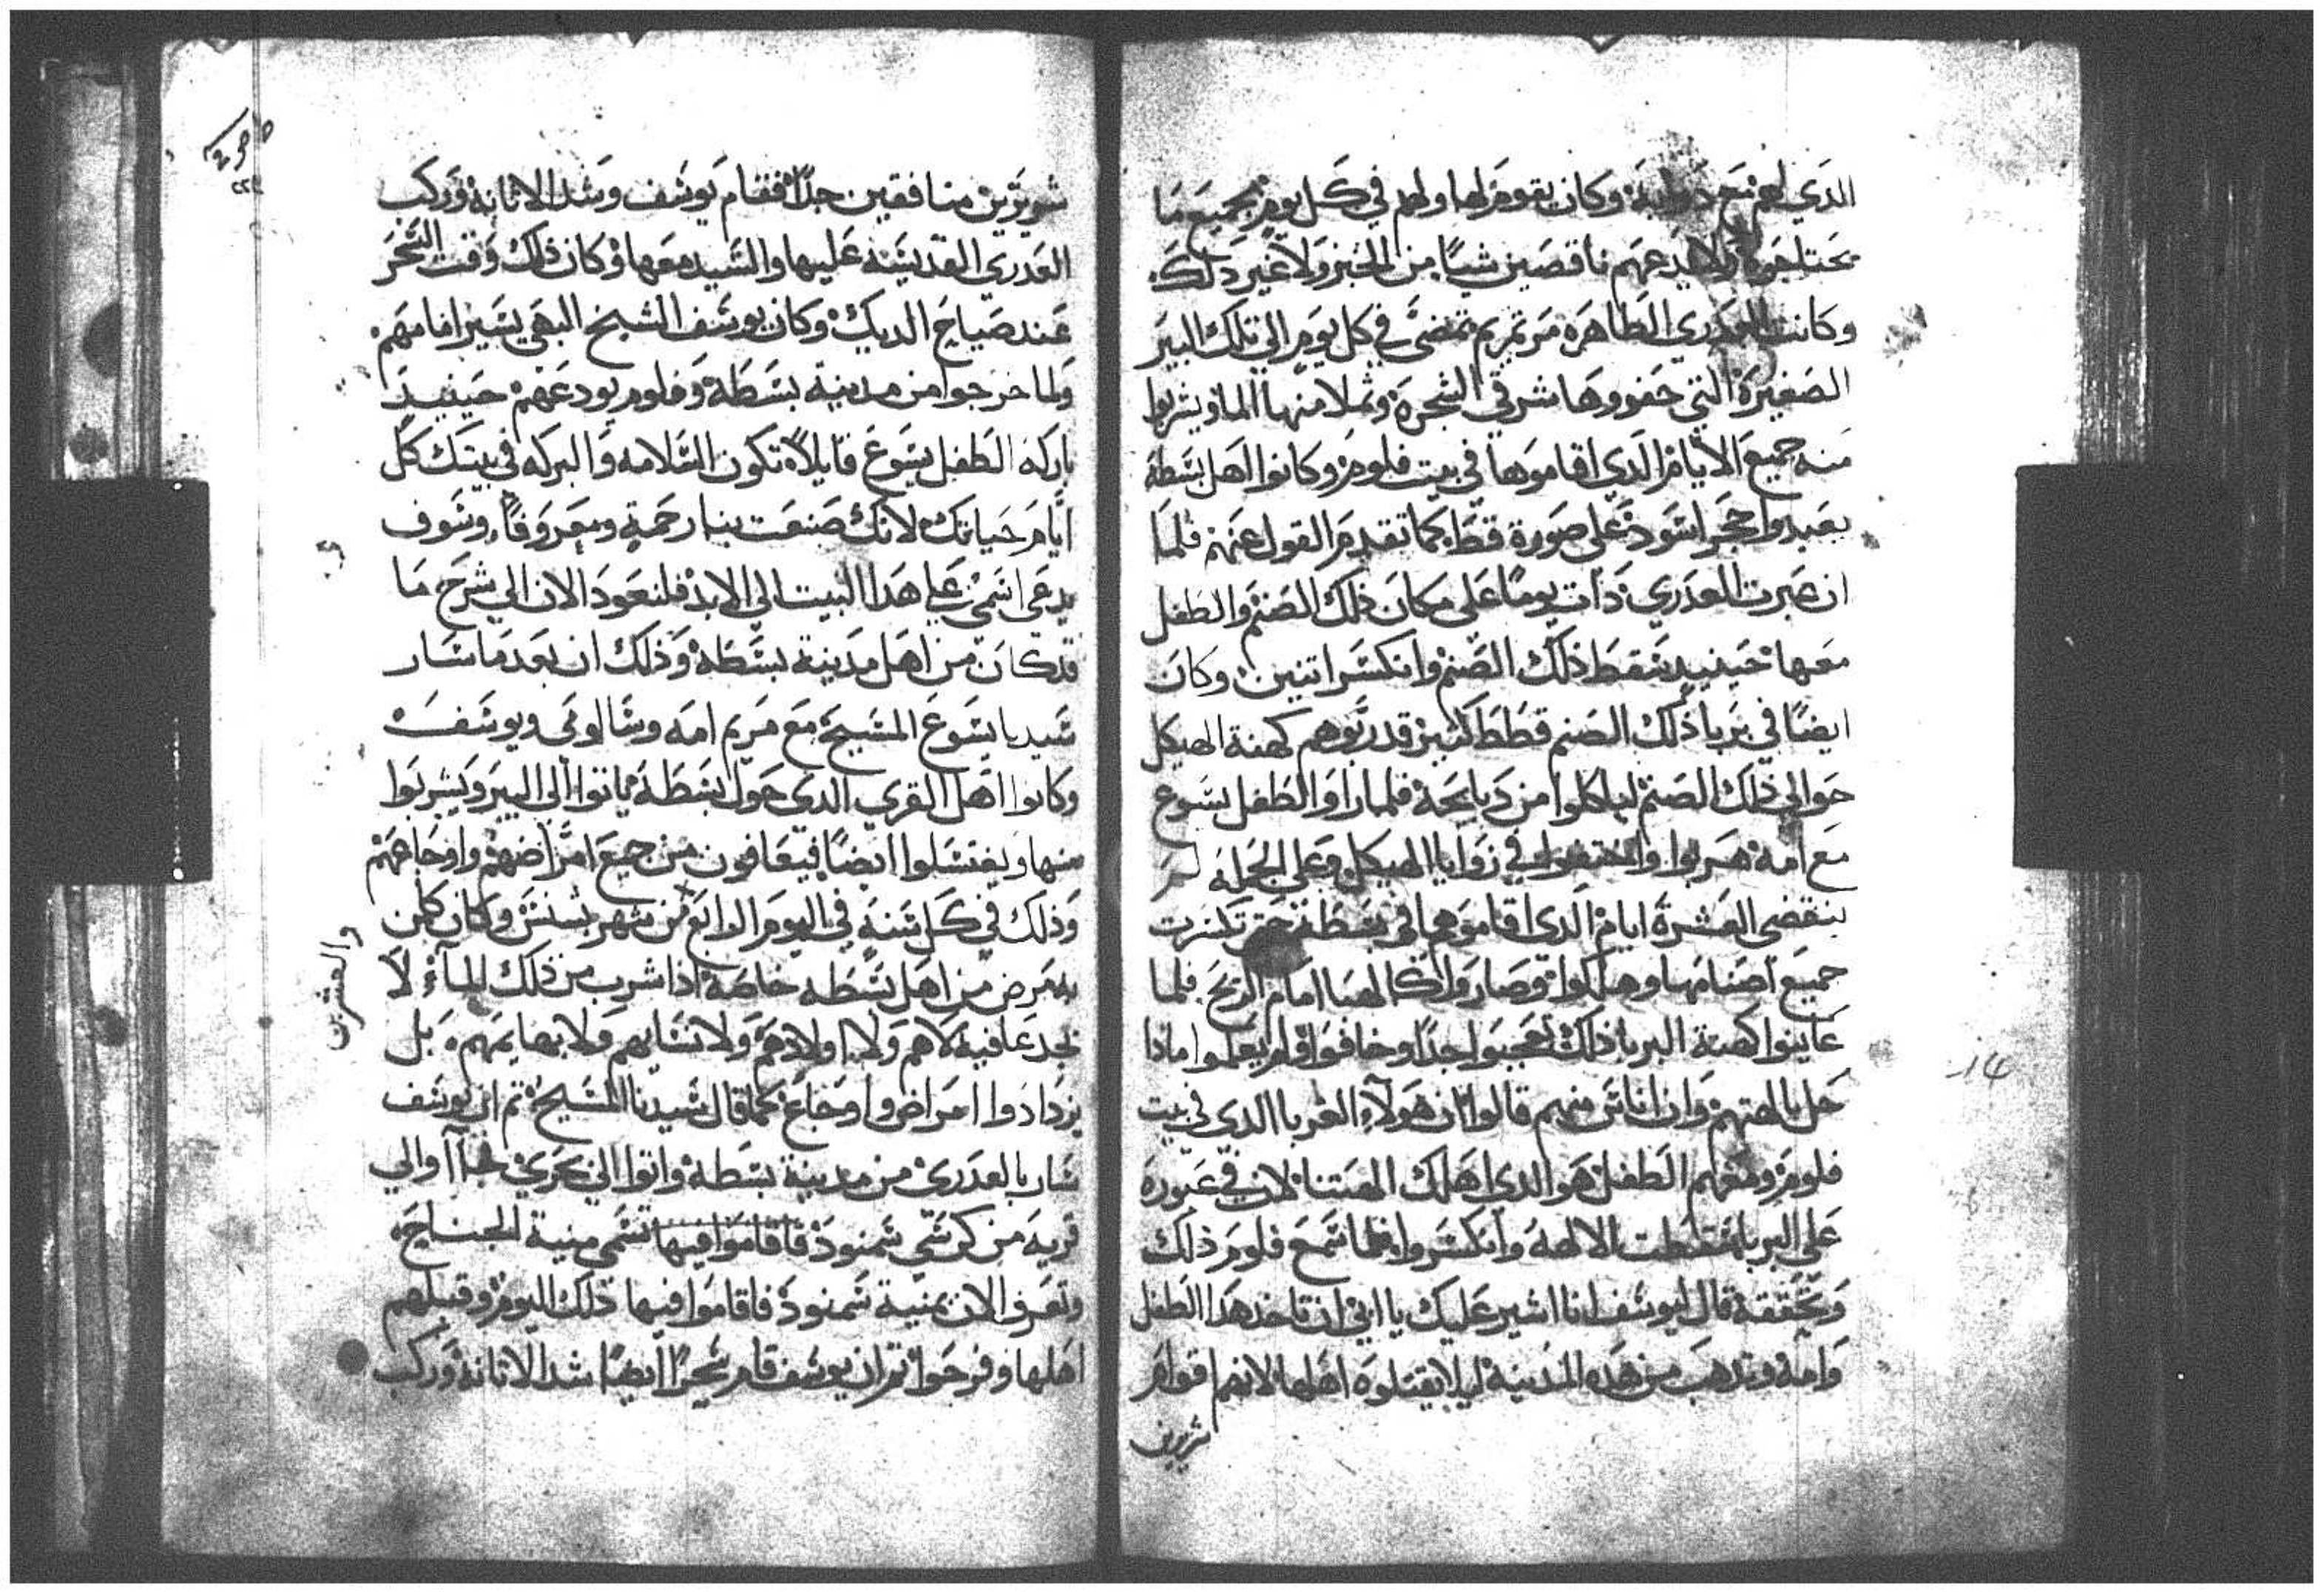 الدي لهم مع دوابه وكان يقوم لها ولهم في كل يوم بجميع ما
يحتاجوه ولا يدعهم ناقصين شيا من الخبز ولا غير دلك
وكانت العدري الطاهره مرتمريم تمضي في كل يوم الي تلك البير
الصغيرة التي حفروها شرقي الشجرة وتملا منها الما ويشربوا
منه جميع الايام الدي اقاموها في بيت فلوم وكانوا اهل بسطة
يعبدوا حجر اسود علي صورة قط كما تقدم القول عنهم فلما
ان عبرت العدري دات يوما علي مكان ذلك الصنم والطفل
معها حينيد سقط ذلك الصنم وانكسر اتنين وكان
ايضا في بربا ذلك الصنم قطط كتيره قد ربوهم كهنة الهيكل
حوالي ذلك الصنم لياكلوا من دبايحه فلما راوا الطفل يسوع
مع امه هربوا واختفوا في زوايا الهيكل وعلي الجملة لم
ينقضي العشرة ايام الدي اقاموها في بسطة حتي تكسرت
جميع اصنامها وهلكوا وصاروا كالهبا امام الريح فلما
عاينوا كهنة البربا ذلك تعجبوا جدا وخافوا ولم يعلموا مادا
حل بالهتهم وان اناس منهم قالوا ان هولاء الغربا الدي في بيت
فلوم ومعهم الطفل هو الدي اهلك الهتنا لان في عبوره
علي البربا سقطت الالهة وانكسروا فلما سمع فلوم ذلك
وتحققه قال ليوسف انا اشير عليك يا ابي ان تاخد هدا الطفل
وامه وتدهب من هده المدينة ليلا يقتلوه اهلها لانهم اقوام
شريرين
شريرين منافقين جدا فقام يوسف وشد الاتانة وركب
العدري القديسة عليها والسيد معها وكان ذلك وقت السحر
عند صياح الديك وكان يوسف الشيخ البهي يسير امامهم
ولما خرجوا من مدينة بسطة وفلوم يودعهم حينيد
باركه الطفل يسوع قايلا تكون السلامه والبركه في بيتك كل
ايام حياتك لانك صنعت بنا رحمة ومعروفا وسوف
يدعي اسمي علي هدا البيت الي الابد فلنعود الان الي شرح ما
قد كان من اهل مدينة بسطة وذلك ان بعد ما سار
سيدنا يسوع المسيح مع مريم امه وسالومي ويوسف
وكانوا اهل القري الدي حول بسطة ياتوا الي البير ويشربوا
منها ويغتسلوا ايضا فيعافون من جميع امراضهم واوجاعهم
وذلك في كل سنه في اليوم الرابع من شهر بشنس وكان كلمن
والعشرين
يمرض من اهل بسطه خاصة ادا شرب من ذلك الماء لا
يجد عافية لا هم ولا اولادهم ولا نسايهم ولا بهايمهم بل
يزدادوا امراض واوجاع كما قال سيدنا المسيح تم ان يوسف
سار بالعدري من مدينة بسطة واتوا الي بحري
والي
قرية من كرسي سمنود فاقاموا فيها تسمي منية الجناح
وتعرف الان بمنية سمنود فاقاموا فيها ذلك اليوم وقبلهم
اهلها وفرحوا تم ان يوسف قام سحرا ايضا شد الاتانة وركب